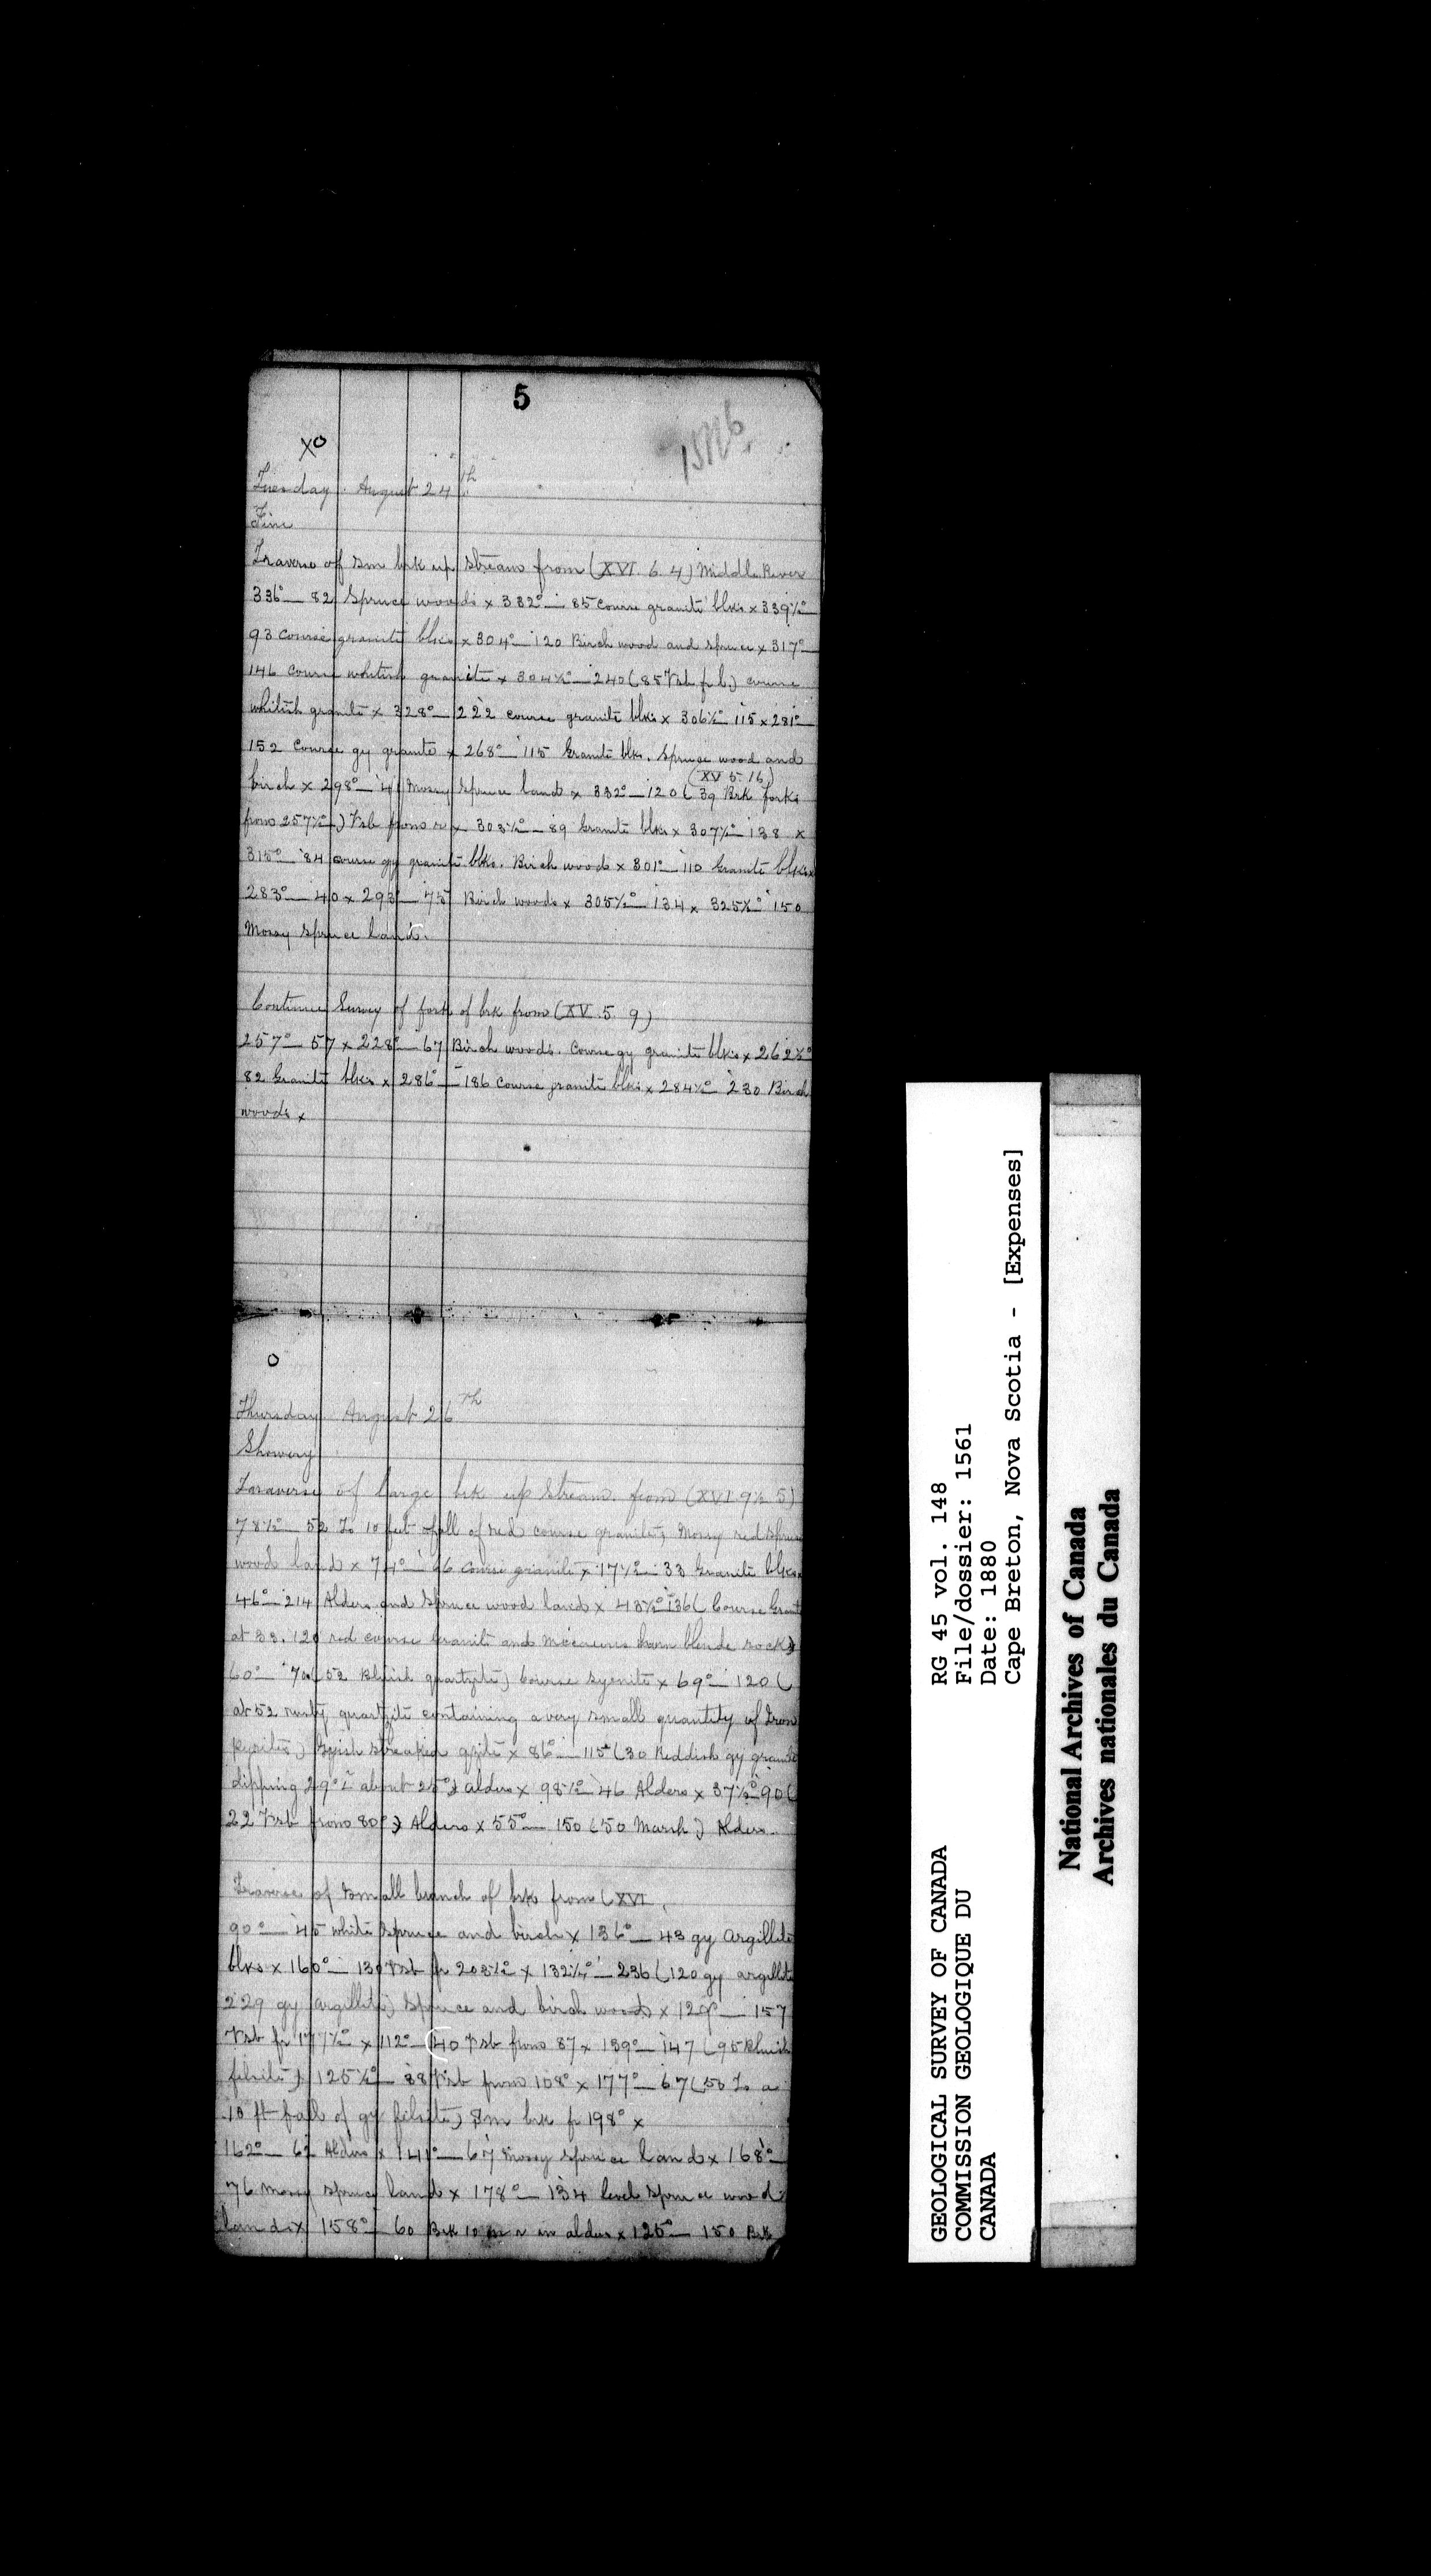 5
XO
Tuesday August 24th
Fine
Traverse of Sm brk up stream from (XVI. 6. 4) Middle River
336° — 82 Spruce woods x 332° — 85 Course granite blks x 339½° —
93 Course granite blks x 304° — 120 Birch wood and spruce x 317° —
146 Course whitish granite x 304½° — 240 (85 Vsb fr l.) course
whitish granite x 328° — 222 course granite blks x 306½° 115 x 281° —
152 Course gy granite x 268° — 115 Granite blks. Spruce wood and
(XV 5. 16)
birch x 298° — Mossy Spruce land x 332° — 120 (39 Brk forks
from 257½°) Vsb from r x 303½° — 89 Granite blks x 307½° 138 x
315° 84 course gy granite blks. Birch woods x 301° — 110 Granite blks x
283° — 40 x 293° — 75 Birch woods x 305½° — 134 x 325½° 150
Mossy Spruce land.
Continue Survey of fork of brk from (XV. 5. 9)
257° — 57 x 228° — 67 Birch woods. Course gy granite blks x 262½°
82 Granite blks x 286° — 186 Course granite blks x 284½° 230 Birch
woods x
O
Thursday August 26th
Showery
Traverse of large brk up stream from (XVI. 9½ 5)
78½° — 52 To 10 feet fall of red course granite, Mossy red spruce
wood land x 74° — 96 Course granite x 17½° — 33 Granite blks x
46° — 214 Alders and Spruce wood land x 43½° 136 (Course Granite
at 33. 120 red course Granite and micaceous horn blende rock)
60° — 70 (52 Bluish quartzite) Course Syenite x 69° — 120 (
at 52 rusty quartzite containing a very small quantity of Iron
Pyrites) Gyish streaked x 86° — 115 (30 Reddish gy granite
dipping 29° about 25°) alders x 98½° 46 Alders x 37½° 90 (
22 Vsb from 80°) Alders x 55° — 150 (50 Marsh) Alders
Traverse of small branch of brk from (XVI.
90° — 45 white Spruce and birch x 136° — 43 gy argillite
blks x 160° — 130 Vsb fr 203½° x 132½° — 236 (120 gy argillite
229 gy argillite) Spruce and birch woods x 129° — 157
Vsb fr 177½° x 112° — (40 Vsb from 87 x 139° — 147 (95 Bluish
felsite) 125½° — 88 Vsb from 108° x 177° — 67 (50 To a
10 ft fall of gy felsite) Sm brk fr 198° x
162° — 62 Alders x 141° — 67 Mossy spruce land x 168° —
76 Mossy spruce land x 178° — 134 level spruce wood
land x 158° — 60 Brk 10 r in alders x 125° — 150 Brk
GEOLOGICAL SURVEY OF CANADA
COMMISSION GEOLOGIQUE DU
CANADA
RG 45 vol. 148
File/dossier: 1561
Date: 1880
Cape Breton, Nova Scotia - [Expenses]
National Archives of Canada
Archives nationales du Canada